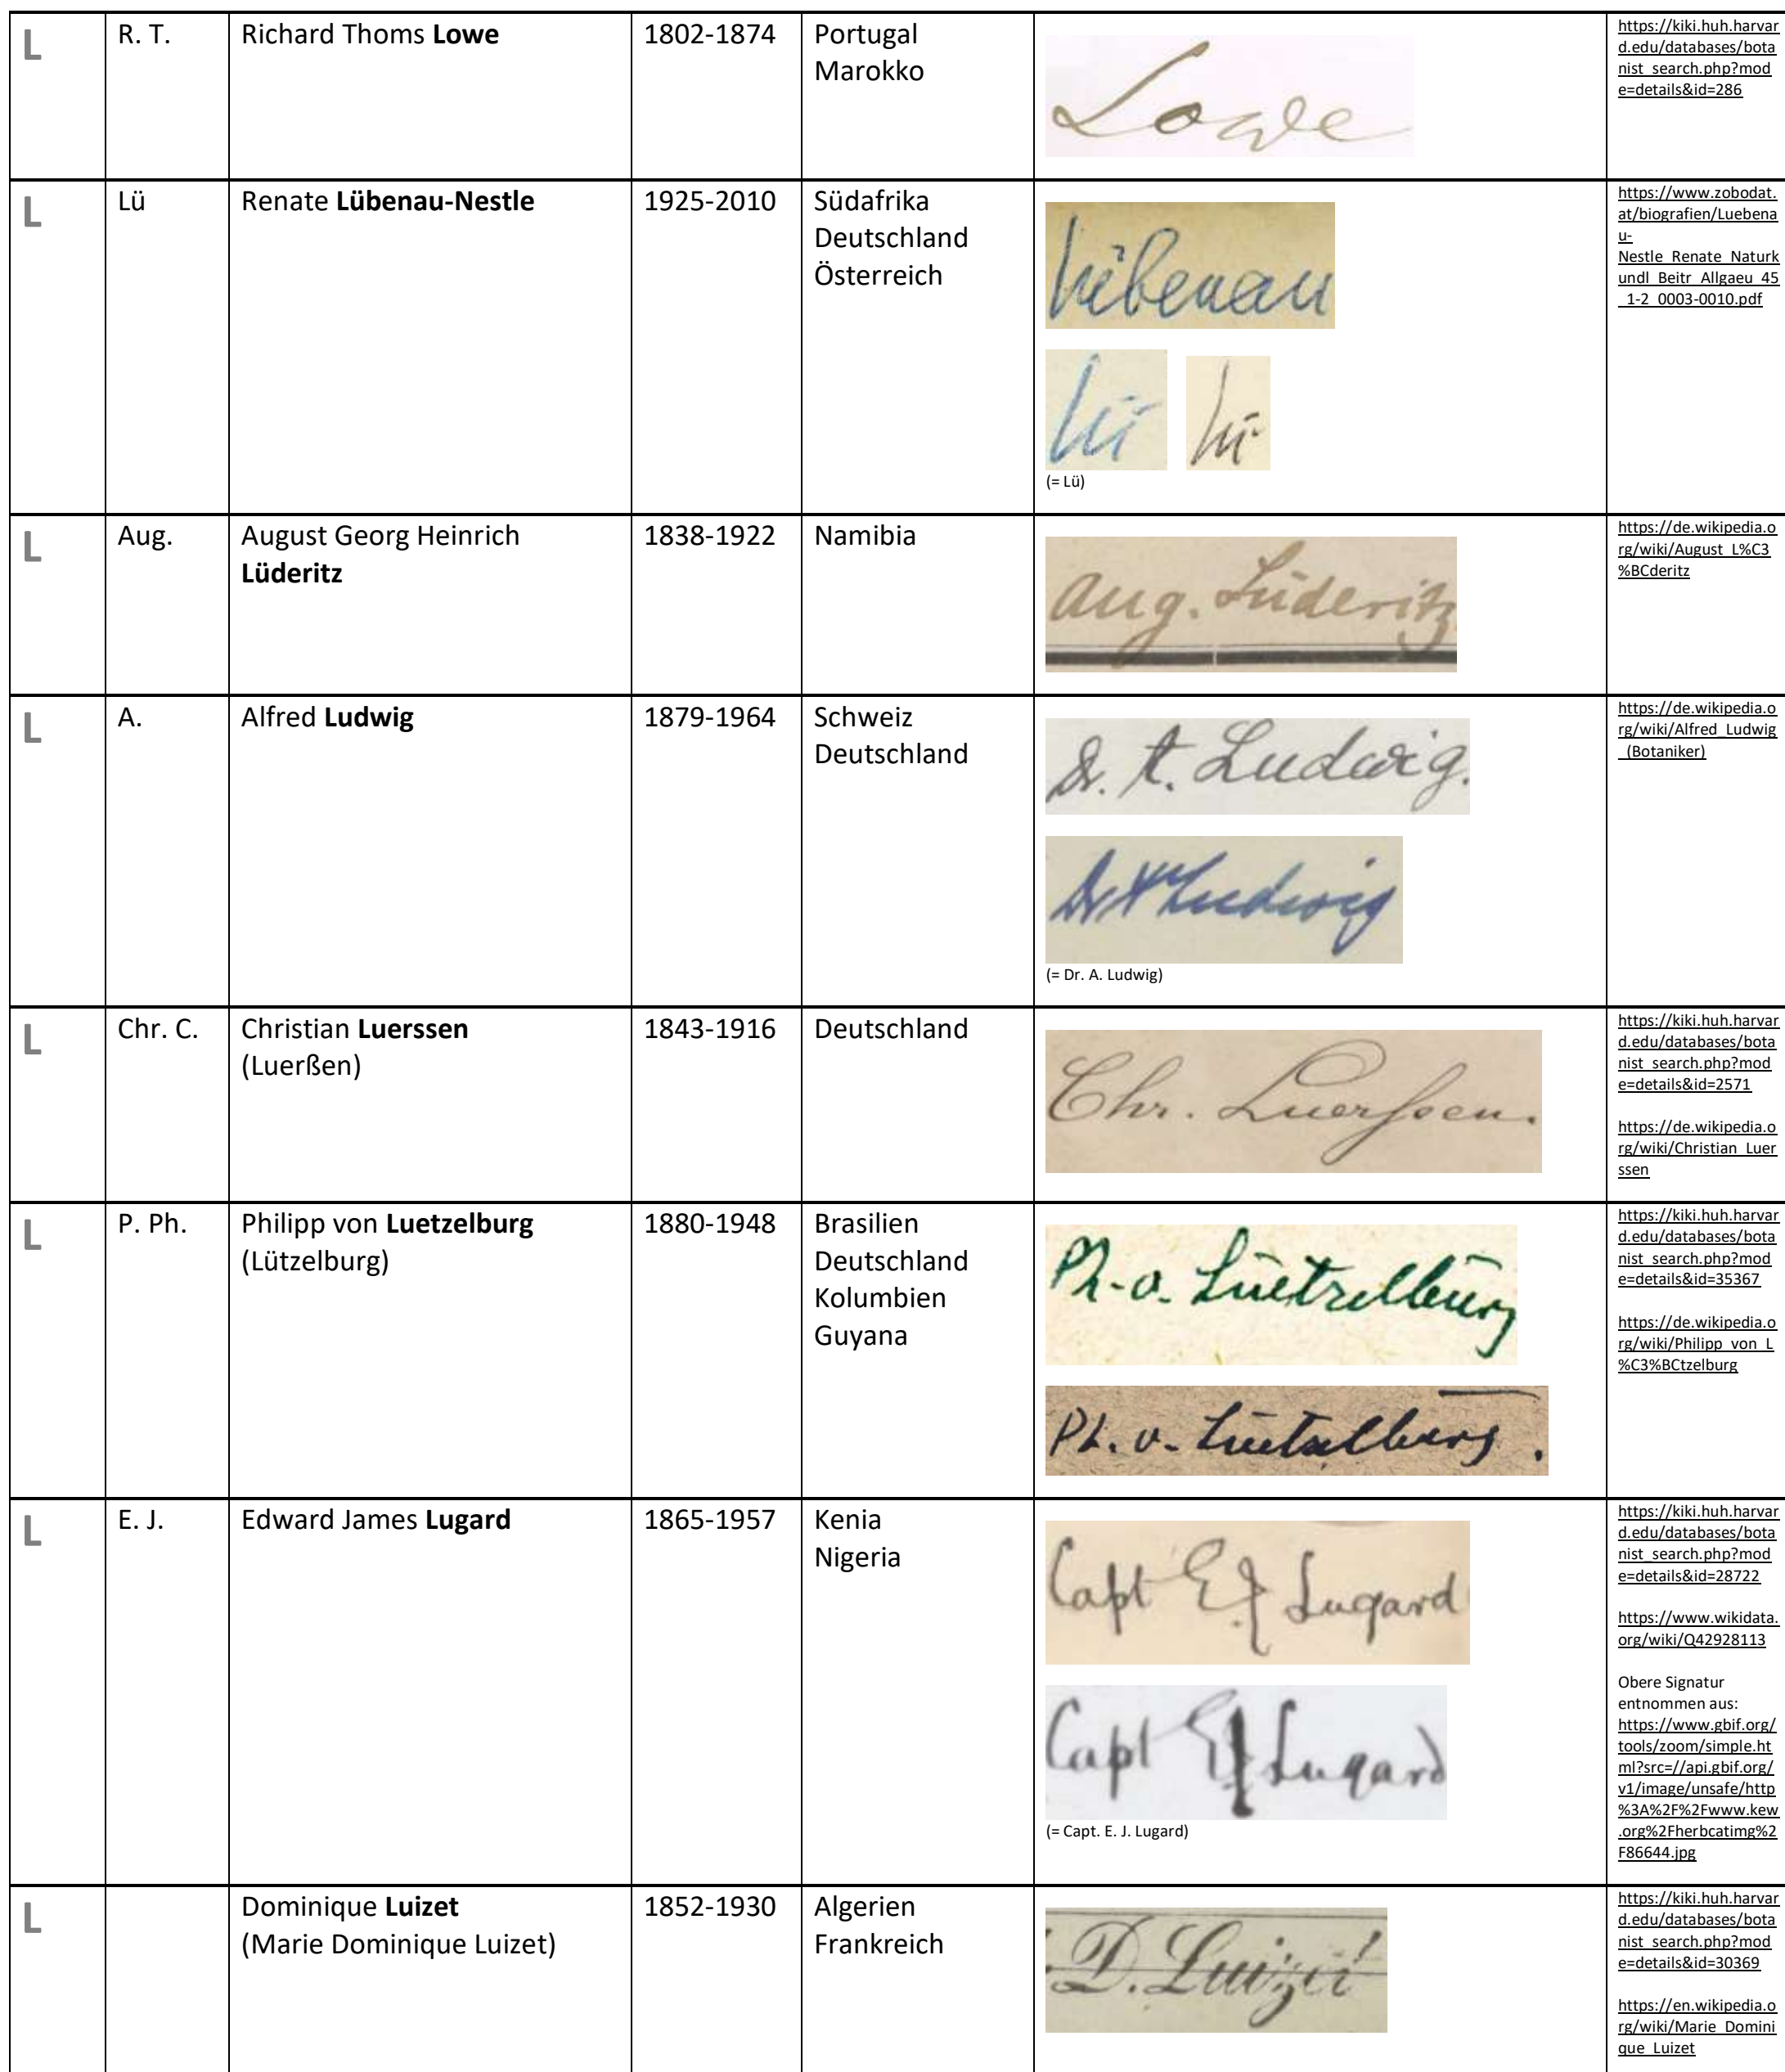 L
R. T.
Richard Thoms Lowe
1802-1874
Portugal
Marokko
Lowe
https://kiki.huh.harvar
d.edu/databases/bota
nist_search.php?mod
e=details&id=286
L
Lü
Renate Lübenau-Nestle
1925-2010
Südafrika
Deutschland
Österreich
Lübenau
Lü
Lü
(= Lü)
https://www.zobodat.
at/biografien/Luebena
u-
Nestle_Renate_Naturk
undl_Beitr_Allgaeu_45
_1-2_0003-0010.pdf
L
Aug.
August Georg Heinrich
Lüderitz
1838-1922
Namibia
Aug. Lüderitz
https://de.wikipedia.o
rg/wiki/August_L%C3
%BCderitz
L
A.
Alfred Ludwig
1879-1964
Schweiz
Deutschland
Dr. A. Ludwig.
Dr A Ludwig
(= Dr. A. Ludwig)
https://de.wikipedia.o
rg/wiki/Alfred_Ludwig
_(Botaniker)
L
Chr. C.
Christian Luerssen
(Luerßen)
1843-1916
Deutschland
Chr. Luerssen.
https://kiki.huh.harvar
d.edu/databases/bota
nist_search.php?mod
e=details&id=2571
https://de.wikipedia.o
rg/wiki/Christian_Luer
ssen
L
P. Ph.
Philipp von Luetzelburg
(Lützelburg)
1880-1948
Brasilien
Deutschland
Kolumbien
Guyana
Ph. v. Luetzelburg
Ph. v. Luetzelburg.
https://kiki.huh.harvar
d.edu/databases/bota
nist_search.php?mod
e=details&id=35367
https://de.wikipedia.o
rg/wiki/Philipp_von_L
%C3%BCtzelburg
L
E. J.
Edward James Lugard
1865-1957
Kenia
Nigeria
Capt E J Lugard
Capt E J Lugard
(= Capt. E. J. Lugard)
https://kiki.huh.harvar
d.edu/databases/bota
nist_search.php?mod
e=details&id=28722
https://www.wikidata.
org/wiki/Q42928113
Obere Signatur
entnommen aus:
https://www.gbif.org/
tools/zoom/simple.ht
ml?src=//api.gbif.org/
v1/image/unsafe/http
%3A%2F%2Fwww.kew
.org%2Fherbcatimg%2
F86644.jpg
L
Dominique Luizet
(Marie Dominique Luizet)
1852-1930
Algerien
Frankreich
D. Luizet
https://kiki.huh.harvar
d.edu/databases/bota
nist_search.php?mod
e=details&id=30369
https://en.wikipedia.o
rg/wiki/Marie_Domini
que_Luizet